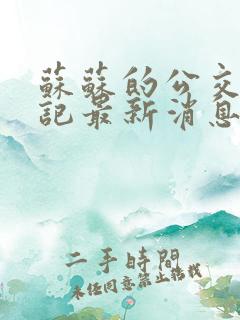 蘇蘇的公交
記最新消息
二手時間
未經同意禁止轉載